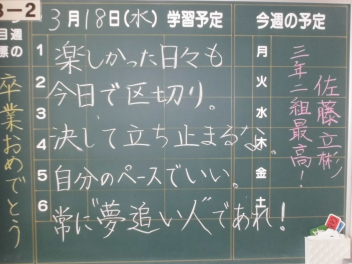 3-2
3月18日(水) 学習予定
今週の予定
週目標の
卒業おめでとう
1
2
3
4
5
6
楽しかった日々も
今日で区切り。
決して立ち止まるな。
自分のペースでいい。
常に"夢追い人"であれ!
月
火
水
木
金
土
三年二組最高!
佐藤立彬